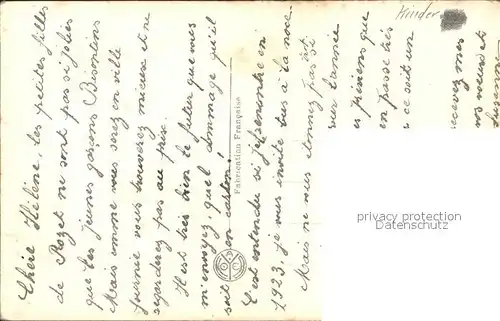 Kinder
Chère Hélène, les petites filles
de Rozet ne sont pas si jolies
que les jeunes garçons Bisontins
Mais comme vous serez en ville
Journée vous trouverez mieux et ne
regarderez pas au prix.
Il est très bien le futur que vous
m'envoyez, quel dommage qu'il
soit en carton!
C'est entendu si je rencontre en
1923, je vous invite tous à la noce.
Mais ne vous étonnez pas si
année
pensons que
en passe très
ce soit un
recevez mes
vœux et
Fabrication Française
privacy protection
Watermark